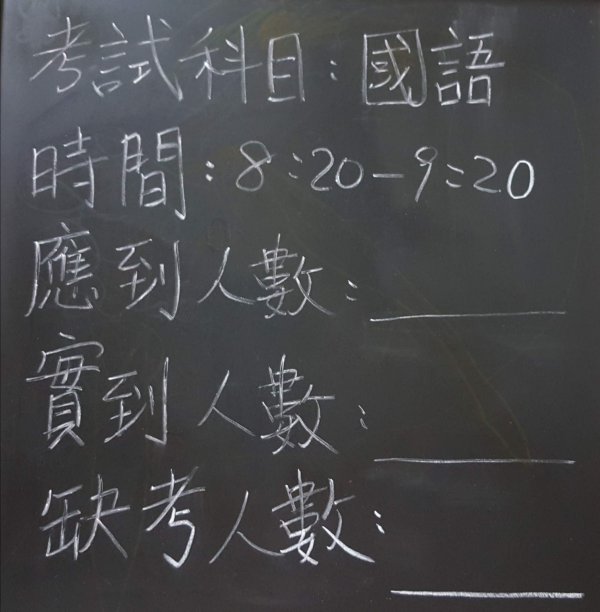 考試科目:國語
時間:8:20-9:20
應到人數:
實到人數:
缺考人數: